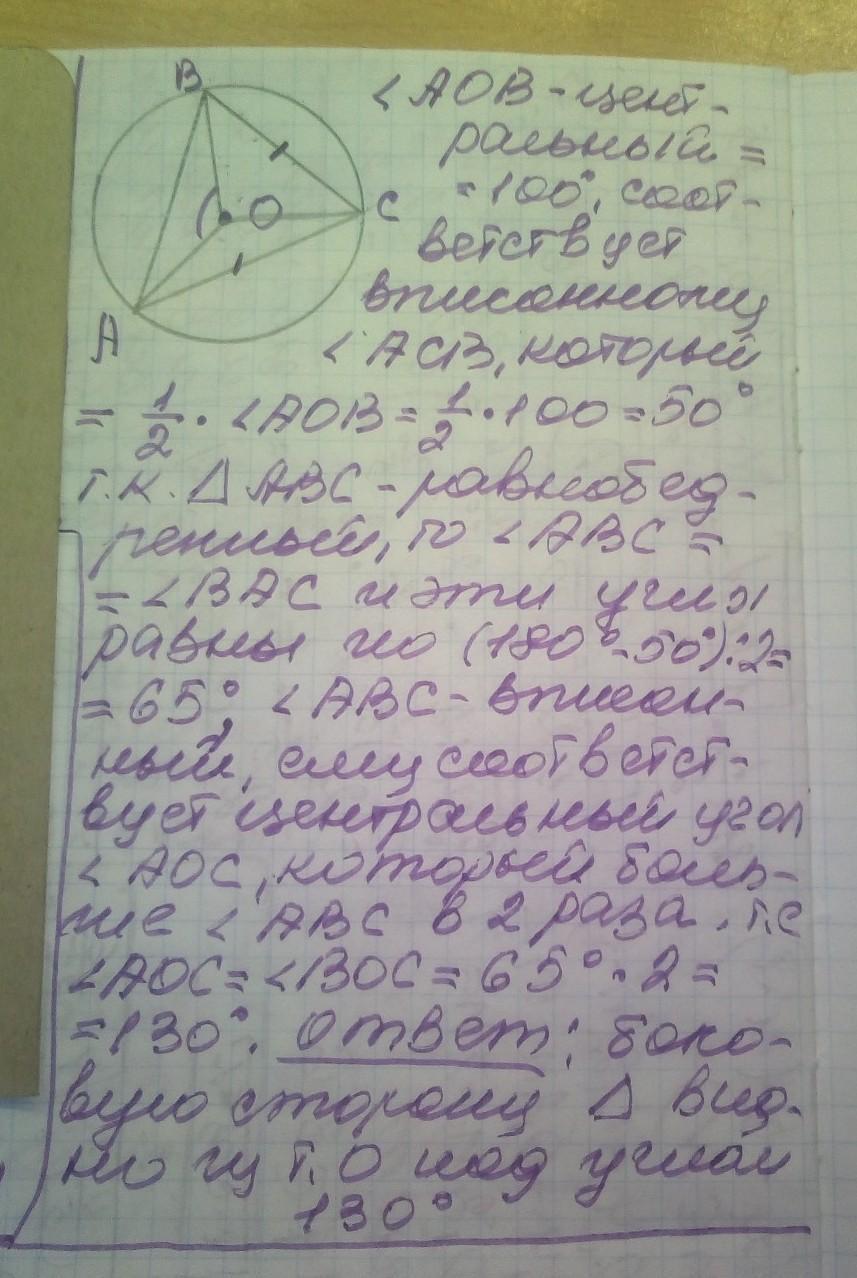 B
O
C
A
∠AOB - цент-
ральный =
= 100°, соот-
ветствует
вписанному
∠ACB, который
= 1/2 · ∠AOB = 1/2 · 100 = 50°
т.к. Δ ABC - равнобед-
ренный, то ∠ABC =
= ∠BAC и эти углы
равны по (180°-50°):2=
= 65°, ∠ABC - вписан-
ный, ему соответст-
вует центральный угол
∠AOC, который боль-
ше ∠ABC в 2 раза. т.е
∠AOC = ∠BOC = 65° · 2 =
= 130°. Ответ: боко-
вую сторону Δ вид-
но из т. O под углом
130°